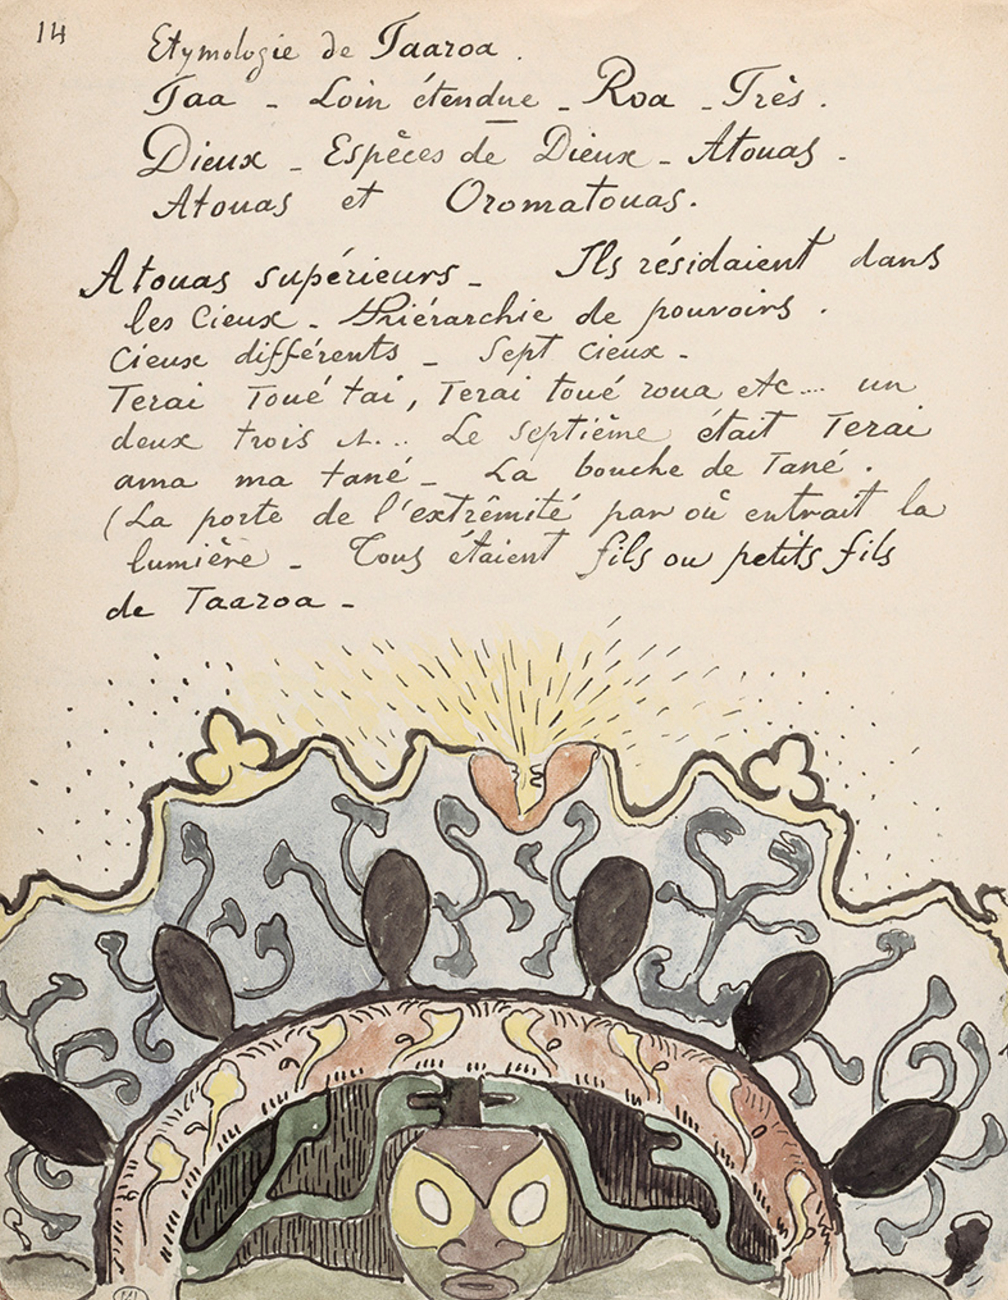 14
Etymologie de Taaroa.
Taa - Loin étendue - Roa - Très.
Dieux - Espèces de Dieux - Atouas -
Atouas et Oromatouas.
Atouas supérieurs - Ils résidaient dans
les Cieux - Hiérarchie de pouvoirs.
Cieux différents - Sept Cieux -
Terai Toué tai, Terai toué roua etc... un
deux trois ... Le Septième était Terai
ama ma tané - La bouche de Tané.
(La porte de l'extrêmité par où entrait la
lumière - Tous étaient fils ou petits fils
de Taaroa -